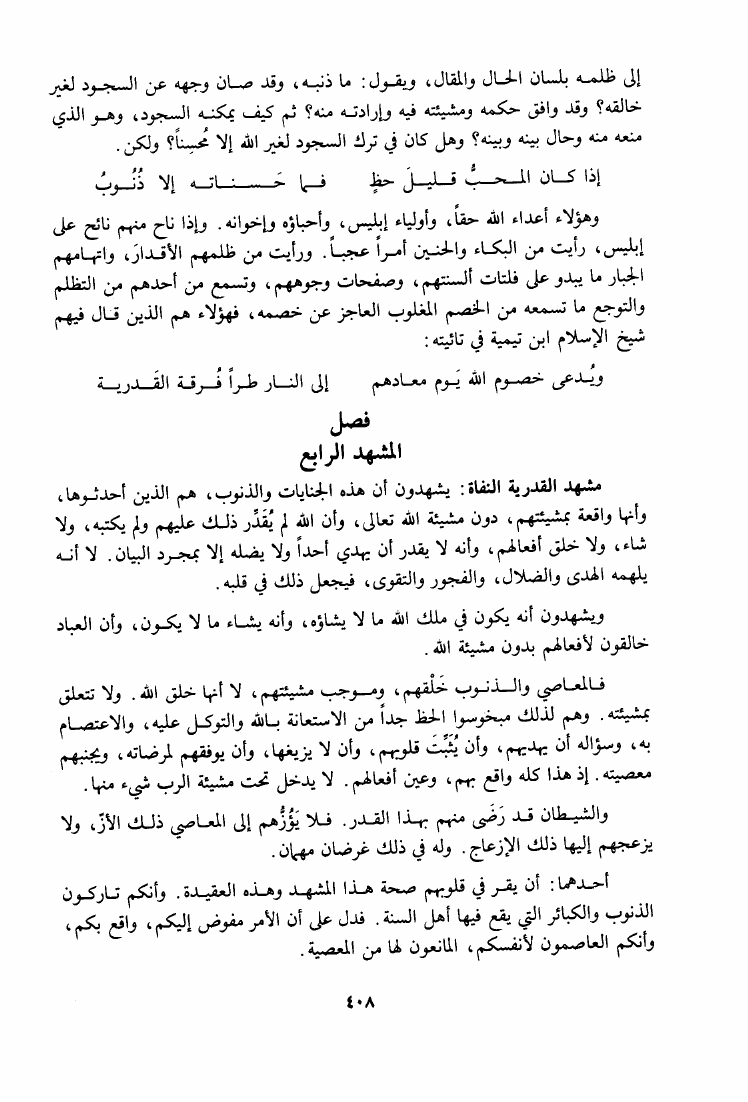 إلى ظلمه بلسان الحال والمقال، ويقول: ما ذنبه، وقد صان وجهه عن السجود لغير
خالقه؟ وقد وافق حكمه ومشيئته فيه وإرادته منه؟ ثم كيف يمكنه السجود، وهو الذي
منعه منه وحال بينه وبينه؟ وهل كان في ترك السجود لغير الله إلا مُحسِناً؟ ولكن.
إذا كان المحبُّ قليلَ حظٍ فما حَسناته إلا ذُنُوبُ
وهؤلاء أعداء الله حقاً، وأولياء إبليس، وأحباؤه وإخوانه. وإذا ناح منهم نائح على
إبليس، رأيت من البكاء والحنين أمراً عجباً. ورأيت من ظلمهم الأقدارَ، واتهامهم
الجبار ما يبدو على فلتات ألسنتهم، وصفحات وجوههم، وتسمع من أحدهم من التظلم
والتوجع ما تسمعه من الخصم المغلوب العاجز عن خصمه، فهؤلاء هم الذين قال فيهم
شيخ الإسلام ابن تيمية في تائيته:
ويُدعى خصوم الله يَوم معادهم إلى النار طراً فُرقة القَدرية
فصل
المشهد الرابع
مشهد القدرية النفاة: يشهدون أن هذه الجنايات والذنوب، هم الذين أحدثوها،
وأنها واقعة بمشيئتهم، دون مشيئة الله تعالى، وأن الله لم يُقَدِّر ذلك عليهم ولم يكتبه، ولا
شاء، ولا خلق أفعالهم، وأنه لا يقدر أن يهدي أحداً ولا يضله إلا بمجرد البيان. لا أنه
يلهمه الهدى والضلال، والفجور والتقوى، فيجعل ذلك في قلبه.
ويشهدون أنه يكون في ملك الله ما لا يشاؤه، وأنه يشاء ما لا يكون، وأن العباد
خالقون لأفعالهم بدون مشيئة الله.
فالمعاصي والذنوب خَلْقهم، وموجب مشيئتهم، لا أنها خلق الله. ولا تتعلق
بمشيئته. وهم لذلك مبخوسوا الحظ جداً من الاستعانة بالله والتوكل عليه، والاعتصام
به، وسؤاله أن يهديهم، وأن يُثَبِّتَ قلوبهم، وأن لا يزيغها، وأن يوفقهم لمرضاته، ويجنبهم
معصيته. إذ هذا كله واقع بهم، وعين أفعالهم. لا يدخل تحت مشيئة الرب شيء منها.
والشيطان قد رَضَى منهم بهذا القدر. فلا يَؤُزُّهم إلى المعاصي ذلك الأزّ، ولا
يزعجهم إليها ذلك الإزعاج. وله في ذلك غرضان مهمان.
أحدهما: أن يقر في قلوبهم صحة هذا المشهد وهذه العقيدة. وأنكم تاركون
الذنوب والكبائر التي يقع فيها أهل السنة. فدل على أن الأمر مفوض إليكم، واقع بكم،
وأنكم العاصمون لأنفسكم، المانعون لها من المعصية.
٤٠٨